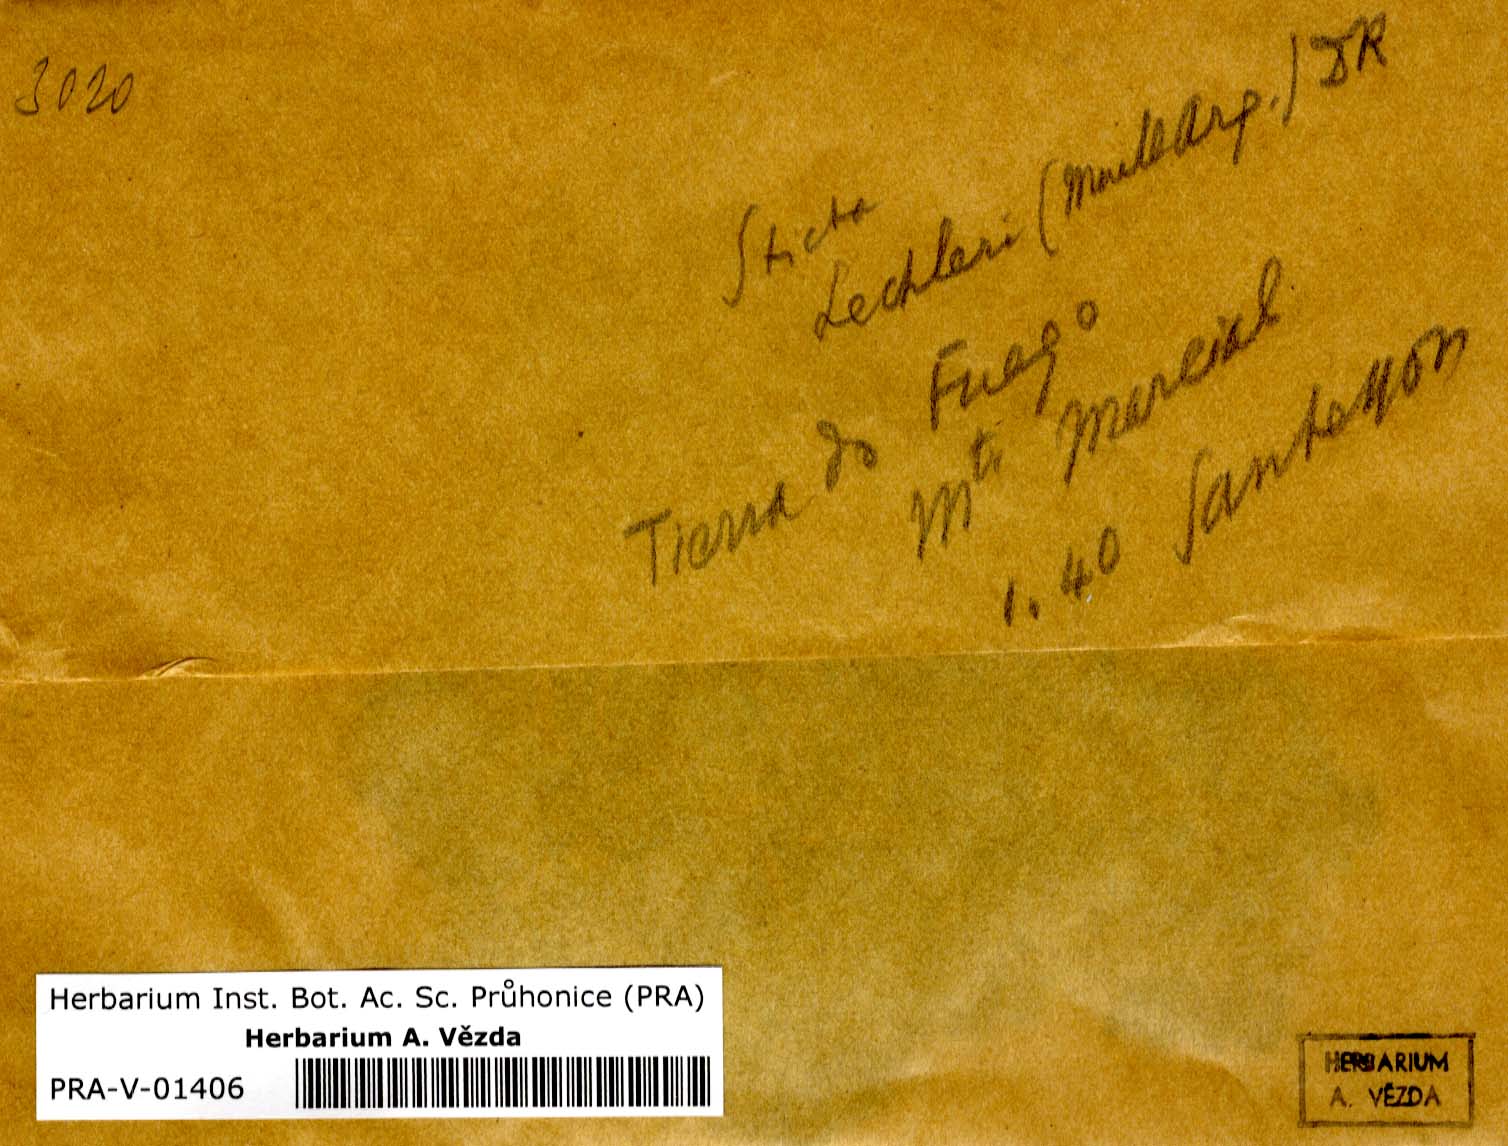 3020
Sticta
Lechleri (Müll Arg.) DR
Tierra do Fuego
Mti Marcial
1.40 Santesson
Herbarium Inst. Bot. Ac. Sc. Průhonice (PRA)
Herbarium A. Vězda
PRA-V-01406
HERBARIUM
A. VĚZDA